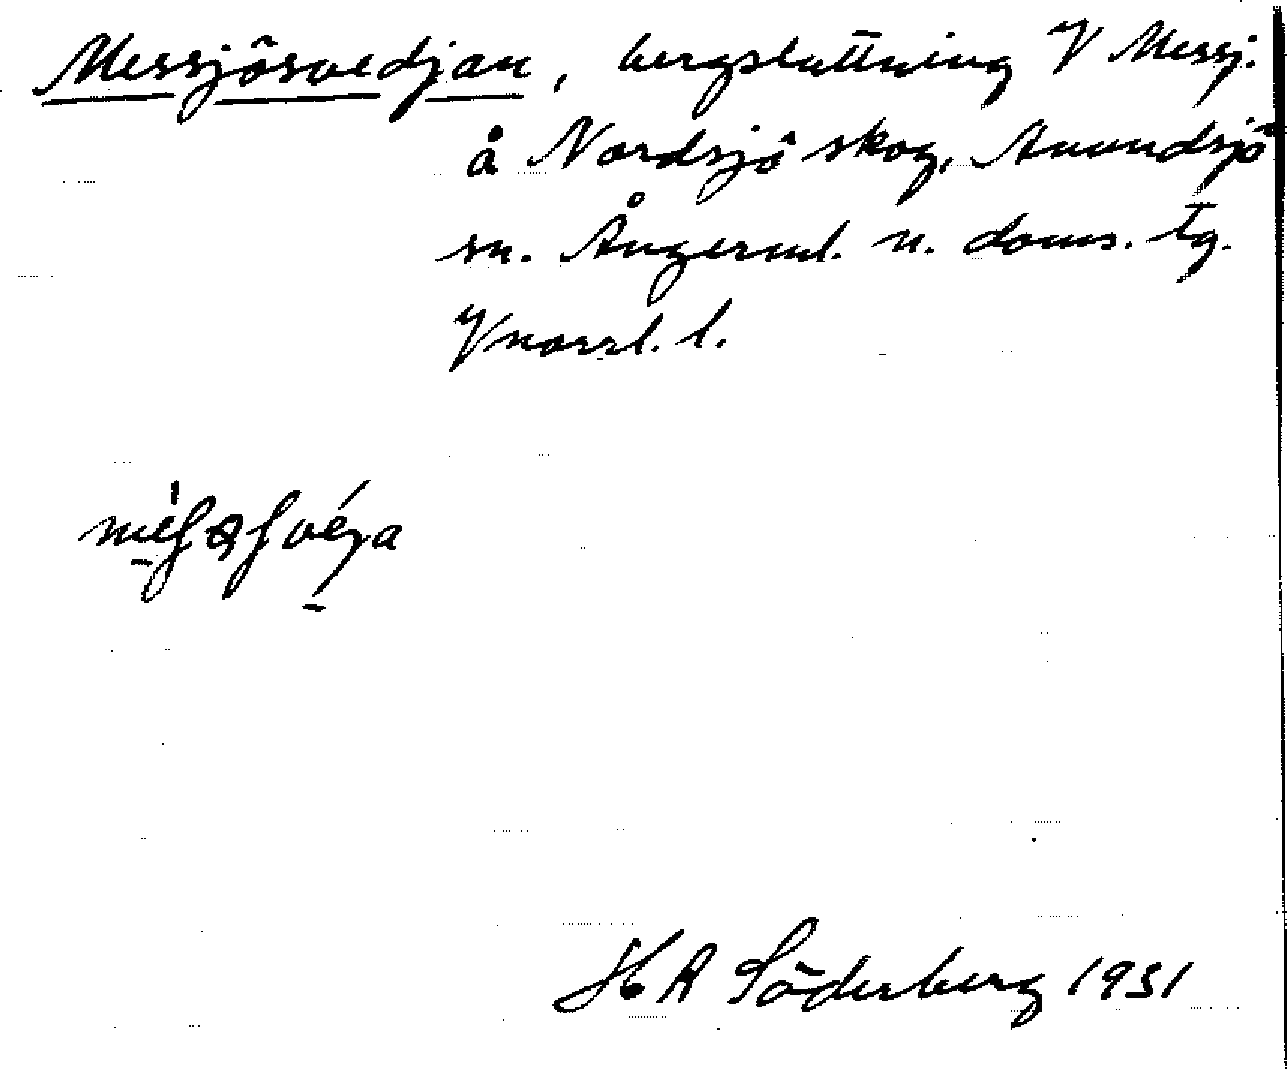 Messjösvedjan, bergsluttning V Messj.
å Nordsjö skog, Anundsjö
sn. Ångerml. n. doms. tg.
Vnorrl. l.
H A Söderberg 1931